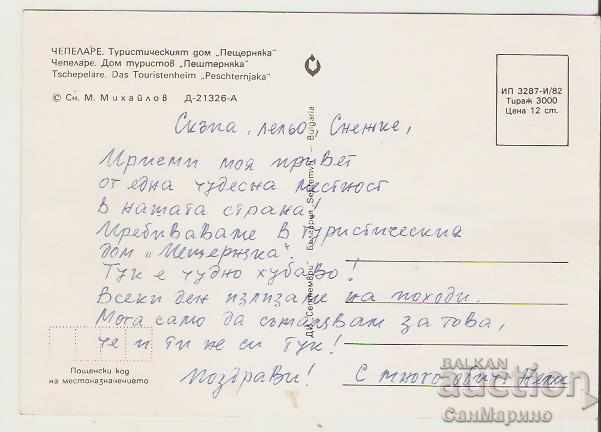 ЧЕПЕЛАРЕ. Туристическият дом „Пещерняка"
Чепеларе. Дом туристов „Пештерняка"
Tschepelare. Das Touristenheim „Peschternjaka"
© Сн. М. Михайлов Д-21326-А
ИП 3287-И/82
Тираж 3000
Цена 12 ст.
ДИ „Септември" България Septemvri — Bulgaria
Скъпа лельо Снежке,
Приеми моя привет
от една чудесна местност
в нашата страна!
Пребиваваме в туристическия
дом „Пещерняка".
Тук е чудно хубаво!
Всеки ден излизаме на походи.
Мога само да съжалявам за това,
че и ти не си тук!
Поздрави! С много обич:
Пощенски код
на местоназначението
BALKAN
auction
СанМарино